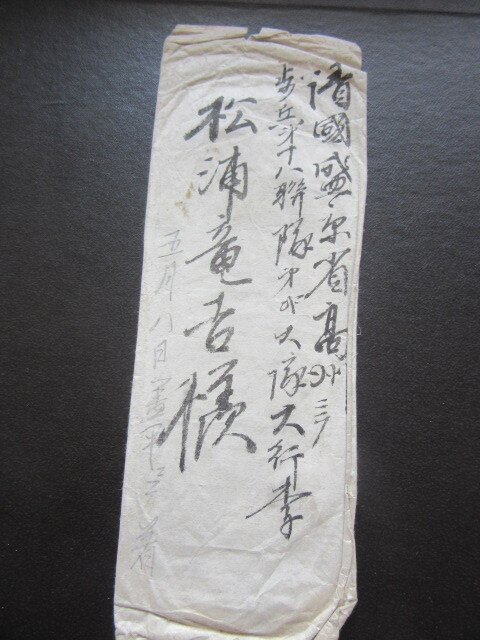 清國盛京省高
歩兵第十八聯隊第弐大隊大行李
松浦竜吉様
五月八日 着